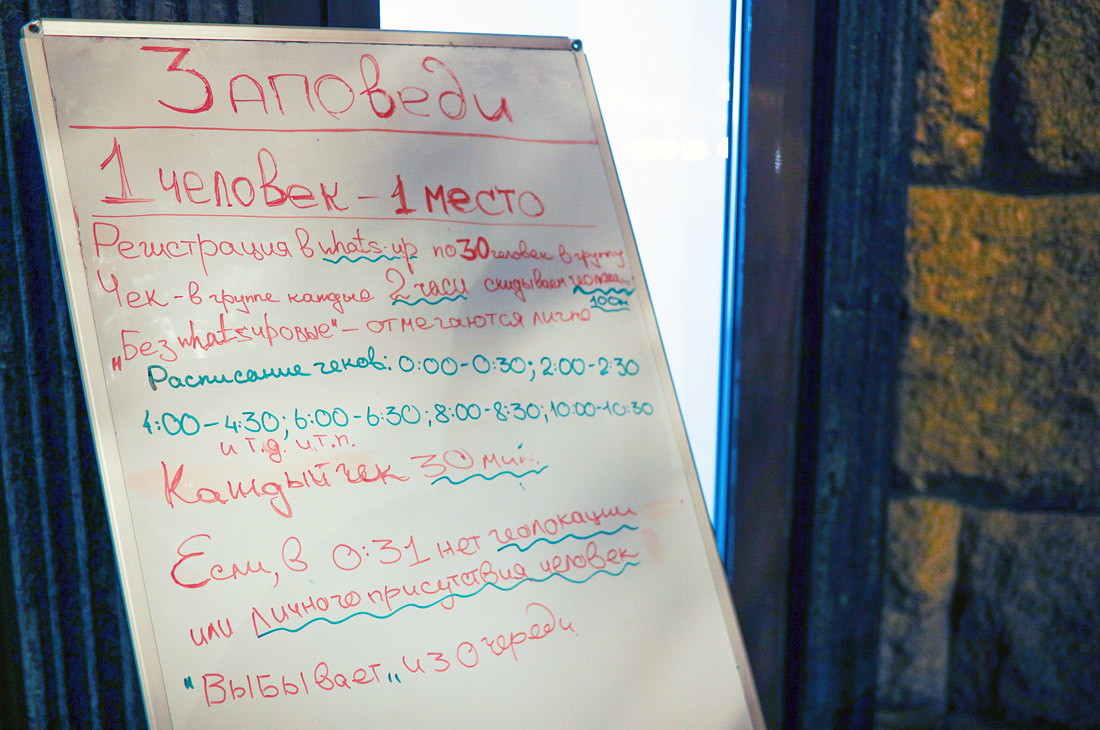 Заповеди
1 человек - 1 место
Регистрация в whats-up по 30 человек в группу
Чек - в группе каждые 2 часи скидываем геолокаци
100м
"Без whatsupовые" - отмечаются лично
Расписание чеков: 0:00-0:30; 2:00-2:30
4:00-4:30; 6:00-6:30; 8:00-8:30; 10:00-10:30
и т.д. и.т.п.
Каждый чек 30 мин.
Если, в 0:31 нет геолокации
или личного присутствия человек
"Выбывает" из очереди